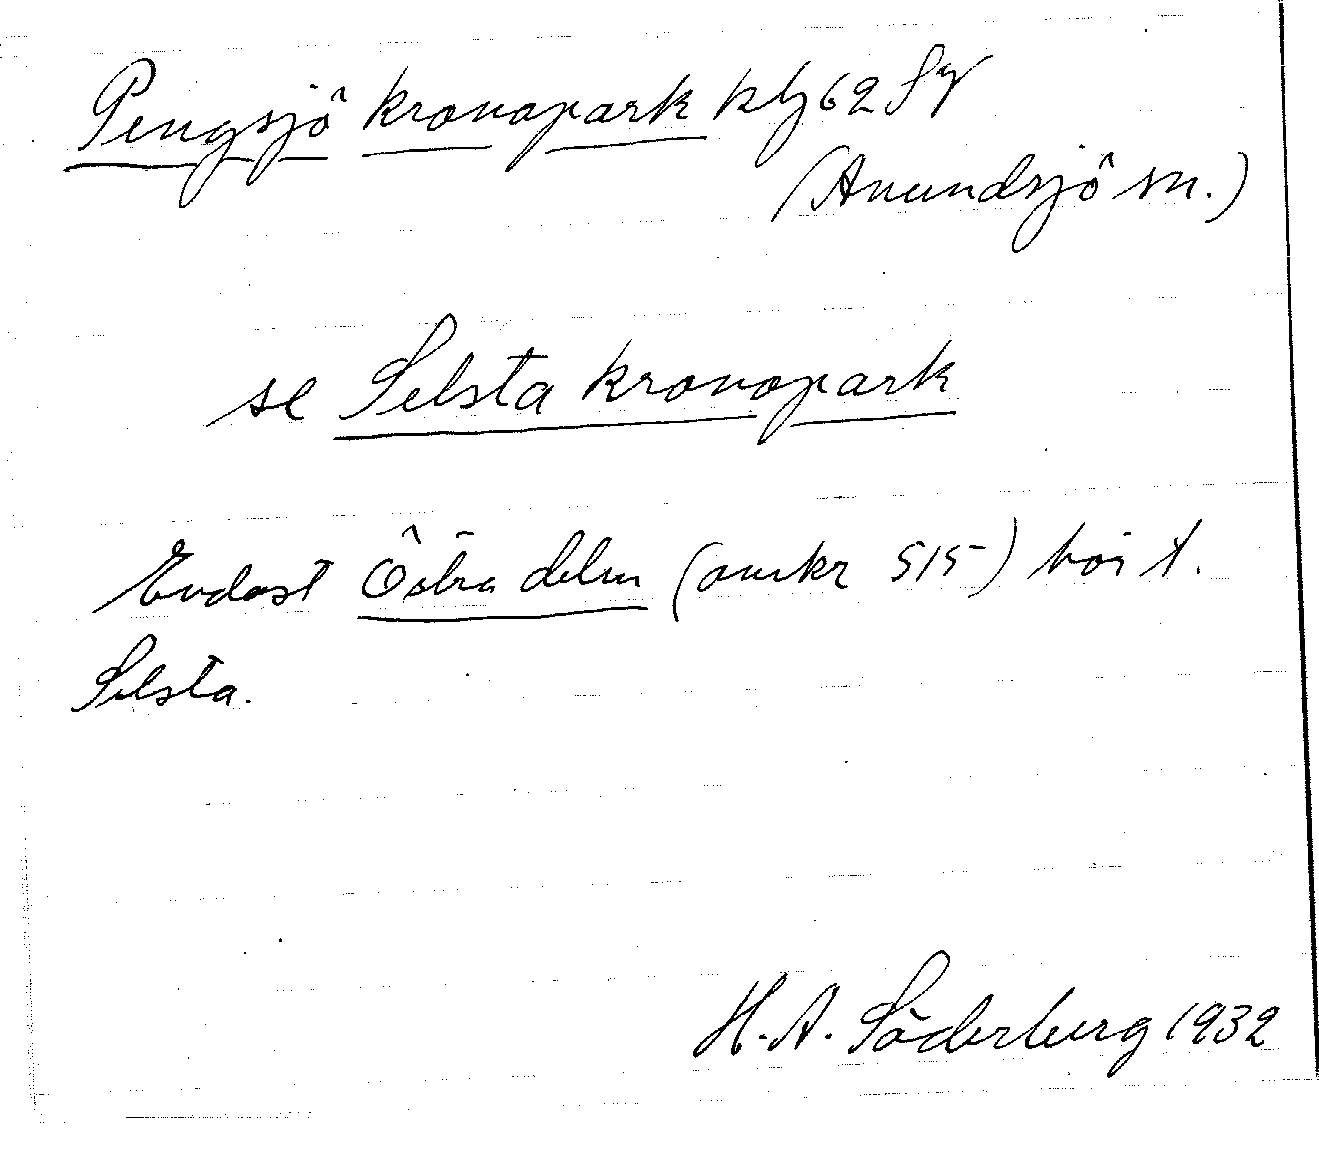 Pengsjö kronopark kbg 62 Sy
(Anundsjö sn.)
se Selsta kronopark
Endast Östra delen (omkr 515) hör t.
Selsta.
H. A. Söderberg 1932